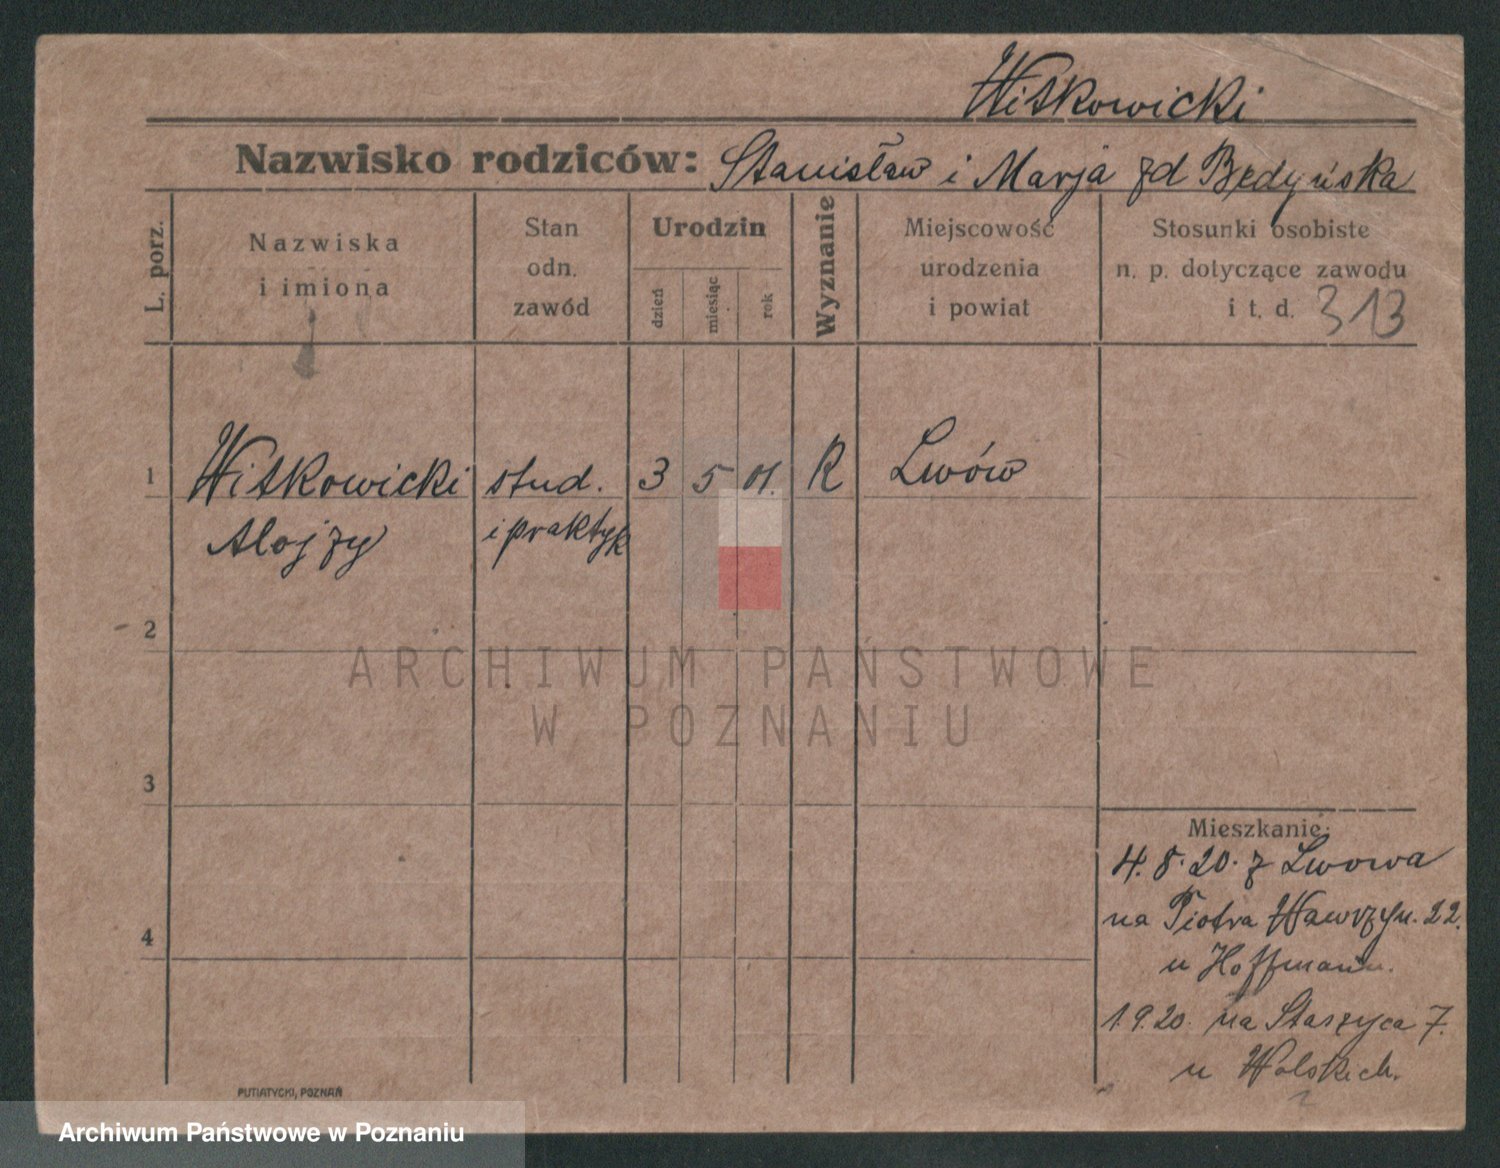 Witkowicki
Nazwisko rodziców: Stanisław i Marja zd Będyńska
L. porz.
Nazwiska
i imiona
Stan
odn.
zawód
Urodzin
dzień
miesiąc
rok
Wyznanie
Miejscowość
urodzenia
i powiat
Stosunki osobiste
n. p. dotyczące zawodu
i t. d. 313
1 Witkowicki stud. 3 5 01. R Lwów
Alojzy i praktyk
2
ARCHIWUM PAŃSTWOWE
W POZNANIU
3
Mieszkanie:
4. 8. 20. z Lwowa
na Piotra Wawrzyn. 22.
4
u Hoffmann.
1.9.20. na Staszyca 7.
u Wolskich.
PUTIATYCKI, POZNAŃ
Archiwum Państwowe w Poznaniu